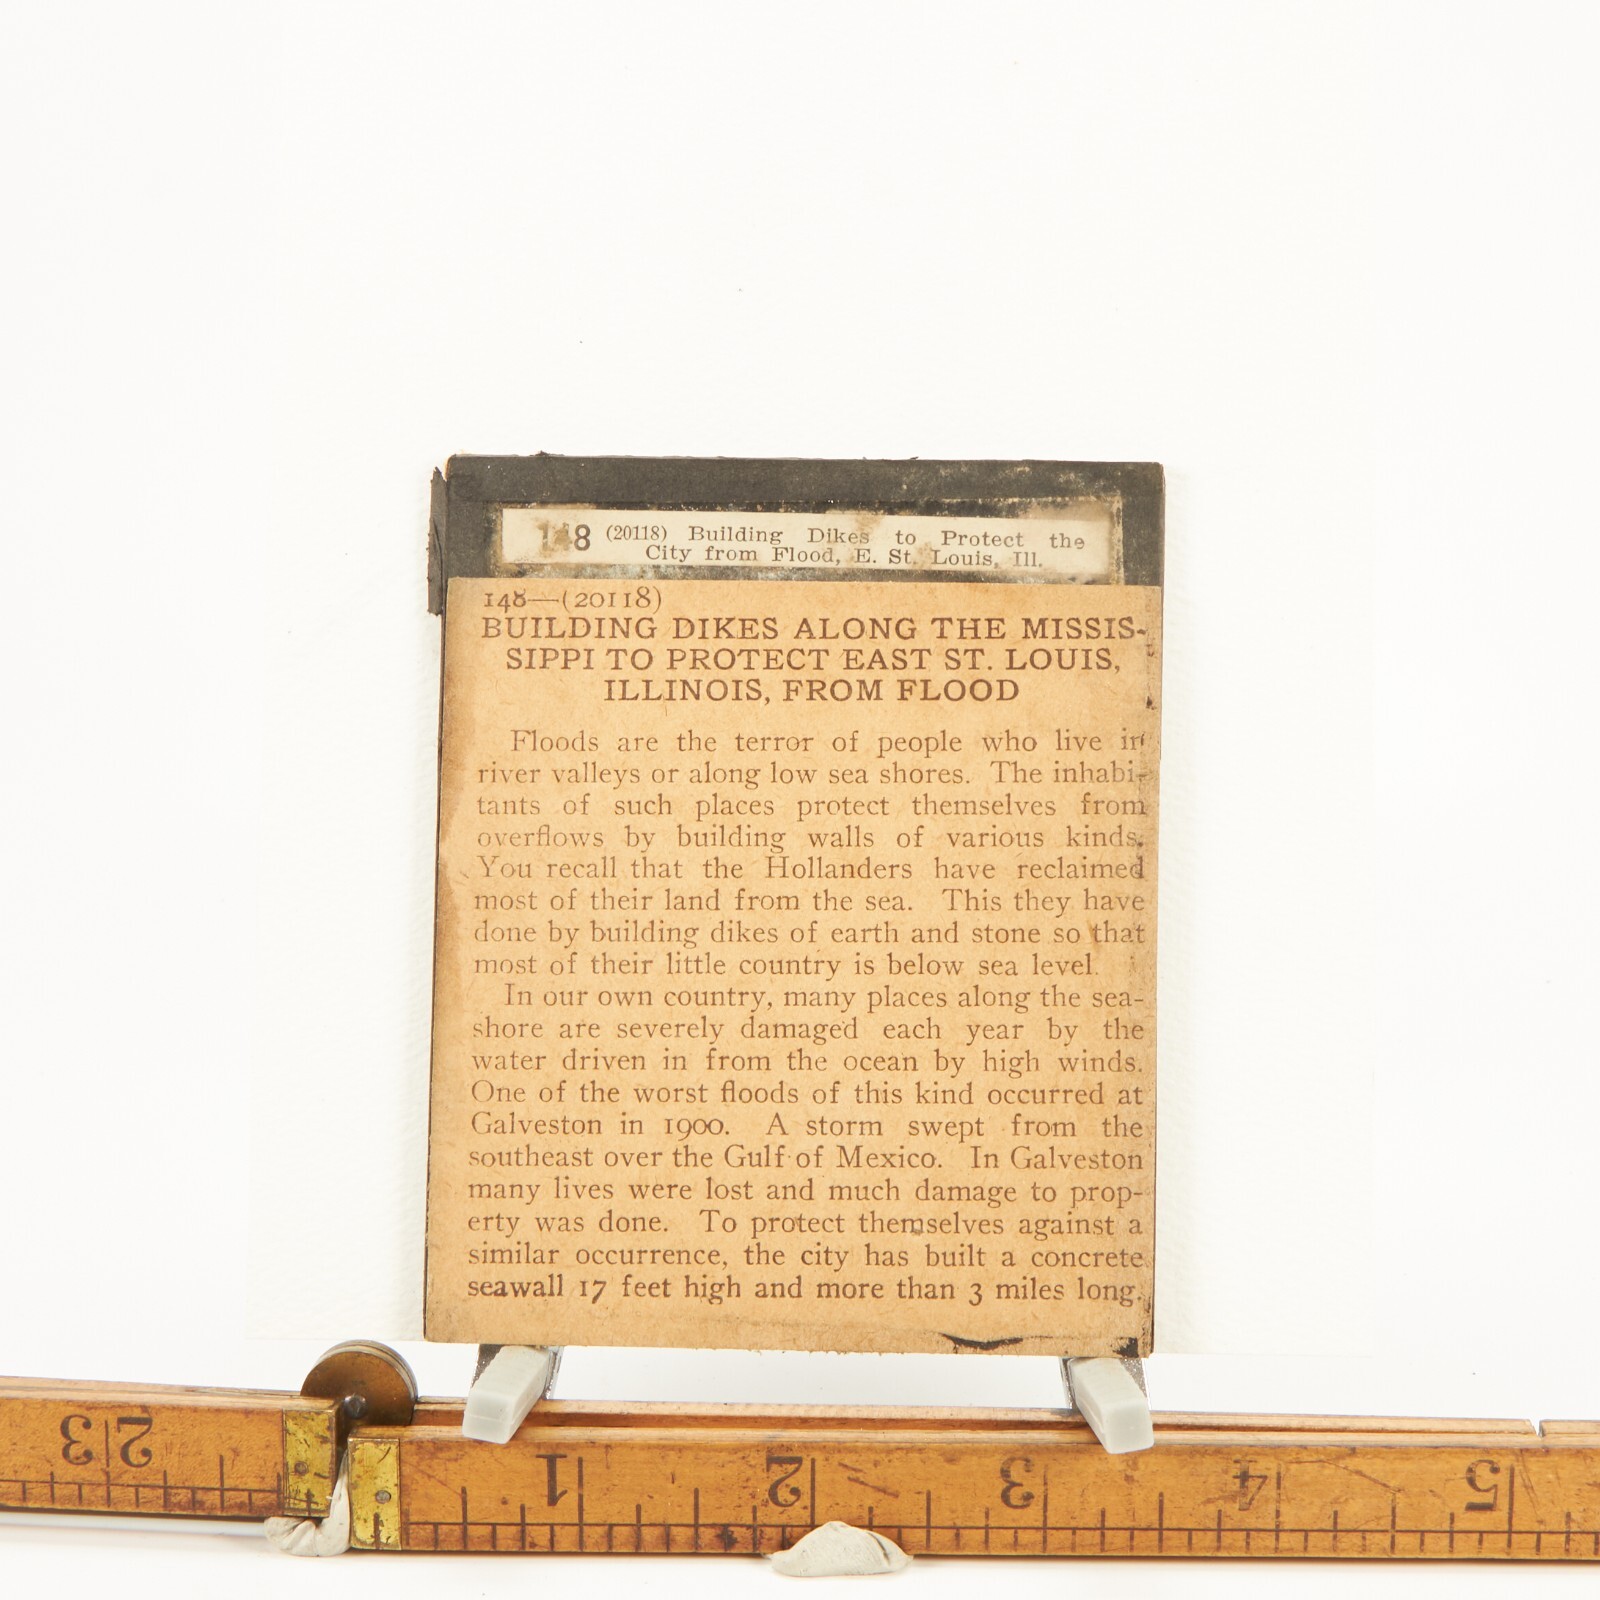 148 (20118) Building Dikes to Protect the
City from Flood, E. St. Louis, Ill.
148—(20118)
BUILDING DIKES ALONG THE MISSIS-
SIPPI TO PROTECT EAST ST. LOUIS,
ILLINOIS, FROM FLOOD
Floods are the terror of people who live in
river valleys or along low sea shores. The inhabi-
tants of such places protect themselves from
overflows by building walls of various kinds.
You recall that the Hollanders have reclaimed
most of their land from the sea. This they have
done by building dikes of earth and stone so that
most of their little country is below sea level.
In our own country, many places along the sea-
shore are severely damaged each year by the
water driven in from the ocean by high winds.
One of the worst floods of this kind occurred at
Galveston in 1900. A storm swept from the
southeast over the Gulf of Mexico. In Galveston
many lives were lost and much damage to prop-
erty was done. To protect themselves against a
similar occurrence, the city has built a concrete
seawall 17 feet high and more than 3 miles long.
23 1 2 3 4 5